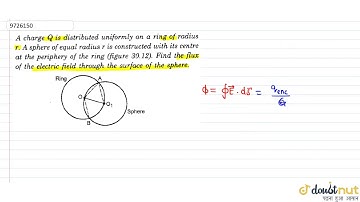 9726150
A charge Q is distributed uniformly on a ring of radius
r. A sphere of equal radius r is constructed with its centre
at the periphery of the ring (figure 30.12). Find the flux
of the electric field through the surface of the sphere.
Ring
A
O
O₁
B
Sphere
ϕ = ∮E⃗.ds⃗ = q_enc/ε₀
doubtnut
पढ़ना हुआ आसान